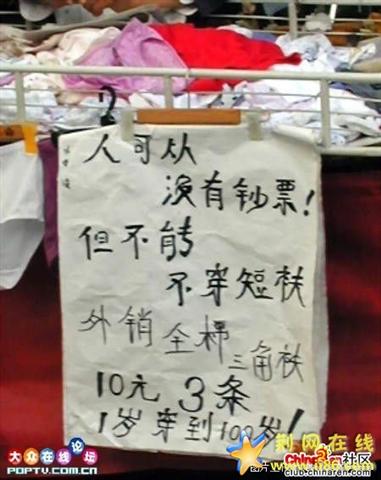 人可从
没有钞票!
但不能
不穿短衭
外销全棉三角衭
10元3条
1岁穿到100岁!
大众在线论坛
POPTV.COM.CN
荆网在线
ChinaRen社区
club.chinaren.com